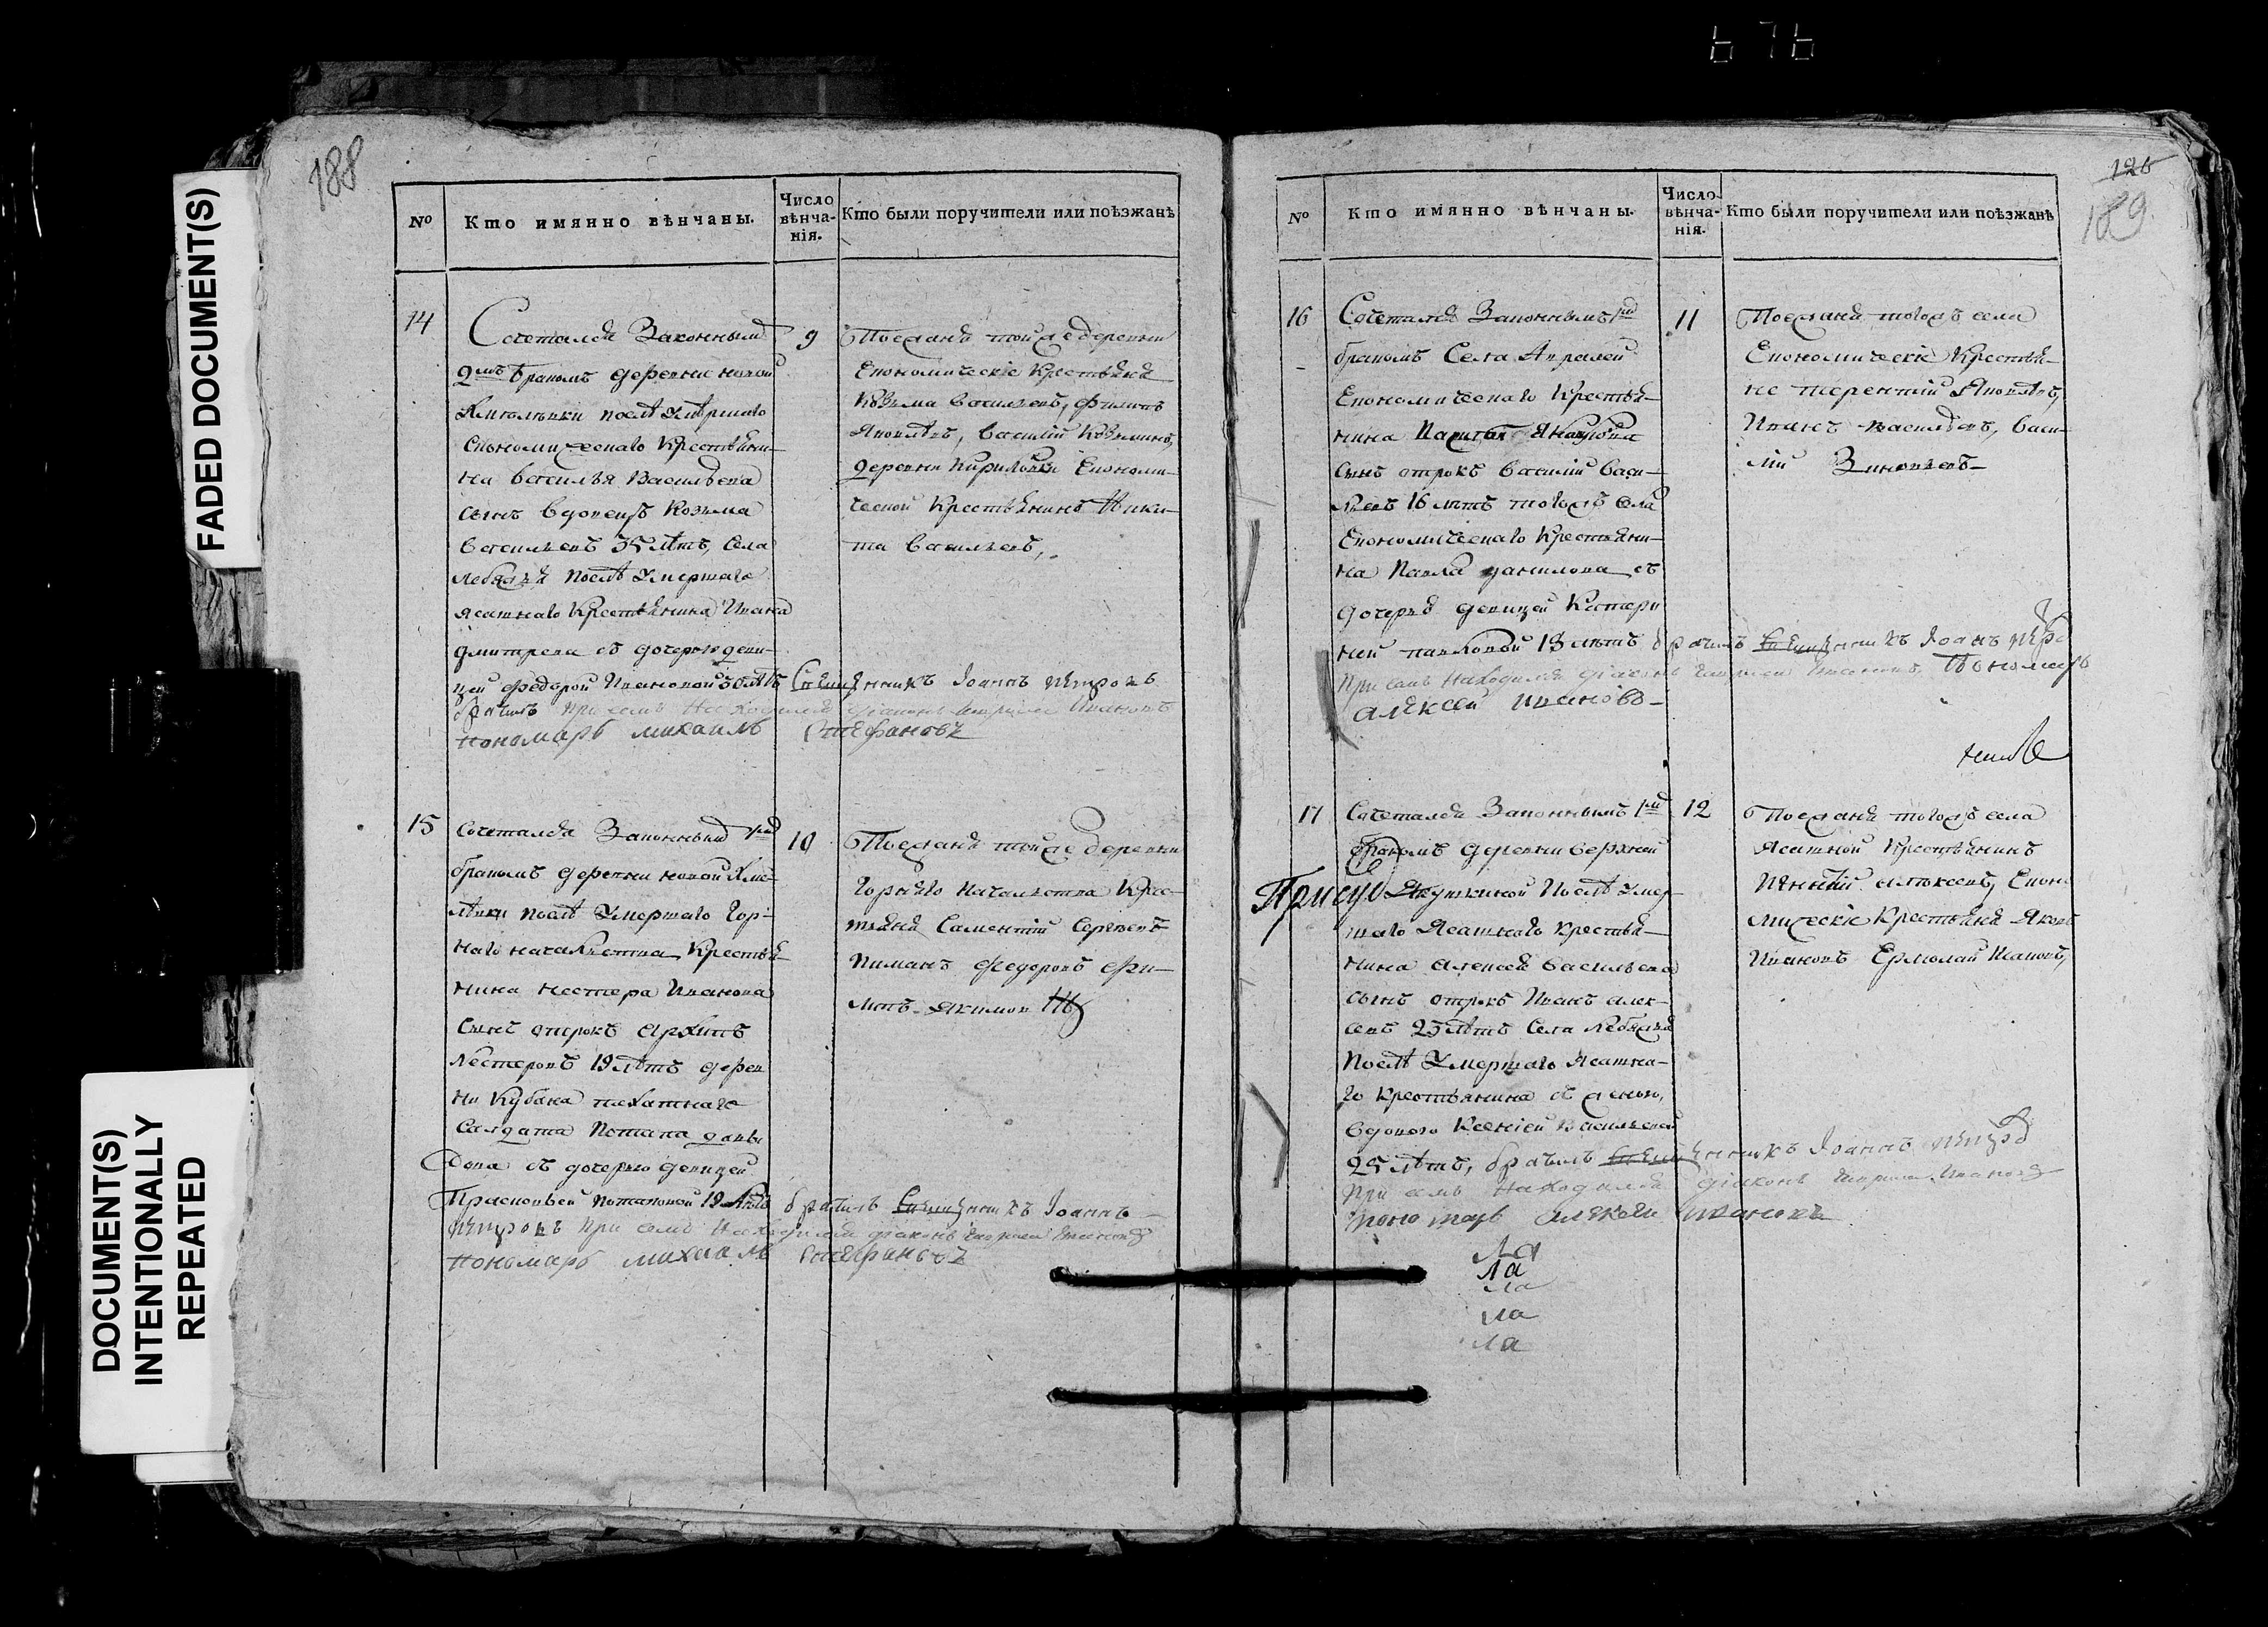 FADED DOCUMENT(S)
DOCUMENT(S)
INTENTIONALLY
REPEATED
188
№
Кто имянно вѣнчаны.
Число
вѣнча-
нія.
Кто были поручители или поѣзжанѣ
14
Сочетался Законнымъ
2мъ бракомъ деревни новой
послѣ Умершаго
Економическаго Крестьяни-
на Василья Васильева
сынъ вдовецъ Козьма
Васильевъ 35 лѣтъ, Села
Лебяжья послѣ Умершаго
Ясашнаго Крестьянина Ивана
Дмитрева съ дочерью деви-
цей Федорой Ивановой 30 лѣтъ Священникъ Іоаннъ Петровъ
брачилъ при семъ Находился діаконъ Ивановъ
пономарь михаилъ Стефановъ
9
Поезжаня тойже деревни
Економическіе Крестьяня
Козьма Васильевъ, Филипъ
Яковлевъ, Василій Козьминъ,
деревни Кириловки Економи-
ческой Крестьянинъ Ники-
та Васильевъ,
15
Сочетался Законнымъ 1мъ
бракомъ деревни новой Хме-
лѣвки послѣ Умершаго Гор-
наго начальства Крестья-
нина Нестера Иванова
Сынъ отрокъ Архипъ
Нестеровъ 19 лѣтъ дерев
ни Кубана пахатнаго
Салдата Потапа давы
дова съ дочерью девицей
Прасковьей Потаповой 19 лѣтъ брачилъ Священникъ Іоаннъ
петровъ при семъ Находился діаконъ Ивановъ
пономарь михаилъ Стефановъ
10
Поезжаня тойже деревни
Горнаго Начальства Крес-
тьяня Саментій Сергѣевъ
Пиманъ Федоровъ Фи-
липъ Якимов
126
189
№
Кто имянно вѣнчаны.
Число
вѣнча-
нія.
Кто были поручители или поѣзжанѣ
16
Сочетался Законнымъ 1мъ
бракомъ Села Апралей
Економическаго Крестья-
нина
сынъ отрокъ Василій Васи-
льевъ 16 лѣтъ тогожъ села
Економическаго Крестьяни-
на Павла данилова съ
дочерью девицей Катери
ной павловой 18 лѣтъ брачилъ Священникъ Іоанъ петро
При семъ Находился діаконъ Ивановъ Пономарь
алексей Ивановъ
11
Поезжаня тогожъ села
Економическіе Крестья-
не Терентій Яковлевъ,
Иванъ Васильевъ, Васи-
лій Зиновьевъ
17
Сочетался Законнымъ 1мъ
бракомъ деревни Верхней
Якушкиной Послѣ Умер-
шаго Ясашнаго Крестья-
нина Алексея Васильева
сынъ отрокъ Иванъ Алек-
сеевъ 25 лѣтъ Села Лебяжья
Послѣ Умершаго Ясашна-
го Крестьянина съ женою,
вдовою Ксеніей Васильевой
25 лѣтъ, брачилъ Священникъ Іоаннъ петров
При семъ Находился діаконъ Ивановъ
Пономарь алексей Ивановъ
Ла
Ла
Ла
Ла
Ла
12
Поезжаня тогожъ села
Ясашной Крестьянинъ
Алексеевъ, Еконо
мическіе Крестьяня Яковъ
Ивановъ Ермолай Ивановъ,